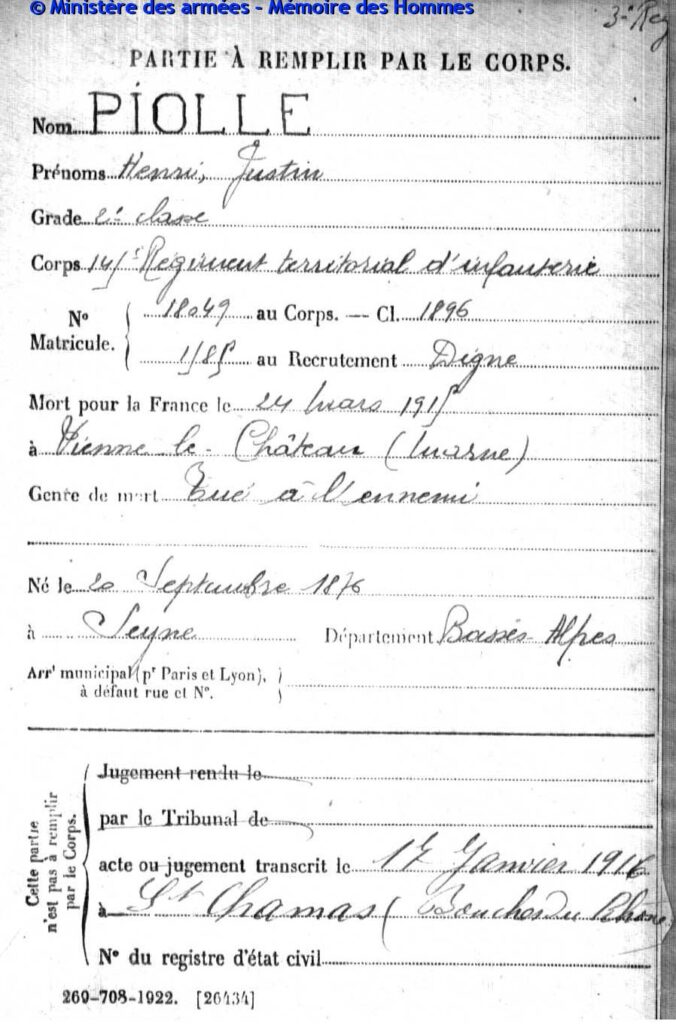 © Ministère des armées - Mémoire des Hommes
3e Reg
PARTIE À REMPLIR PAR LE CORPS.
Nom PIOLLE
Prénoms Henri, Justin
Grade 2e classe
Corps 145e Régiment territorial d'infanterie
No Matricule. 18049 au Corps. — Cl. 1896
1185 au Recrutement Digne
Mort pour la France le 24 Mars 1915
à Vienne le Château (Marne)
Genre de mort Tué à l'ennemi
Né le 20 Septembre 1876
à Seyne Département Basses Alpes
Arrt municipal (pr Paris et Lyon),
à défaut rue et No.
Cette partie n'est pas à remplir par le Corps.
Jugement rendu le
par le Tribunal de
acte ou jugement transcrit le 17 Janvier 1916
à St Chamas (Bouches du Rhône
No du registre d'état civil
260-708-1922. [26434]